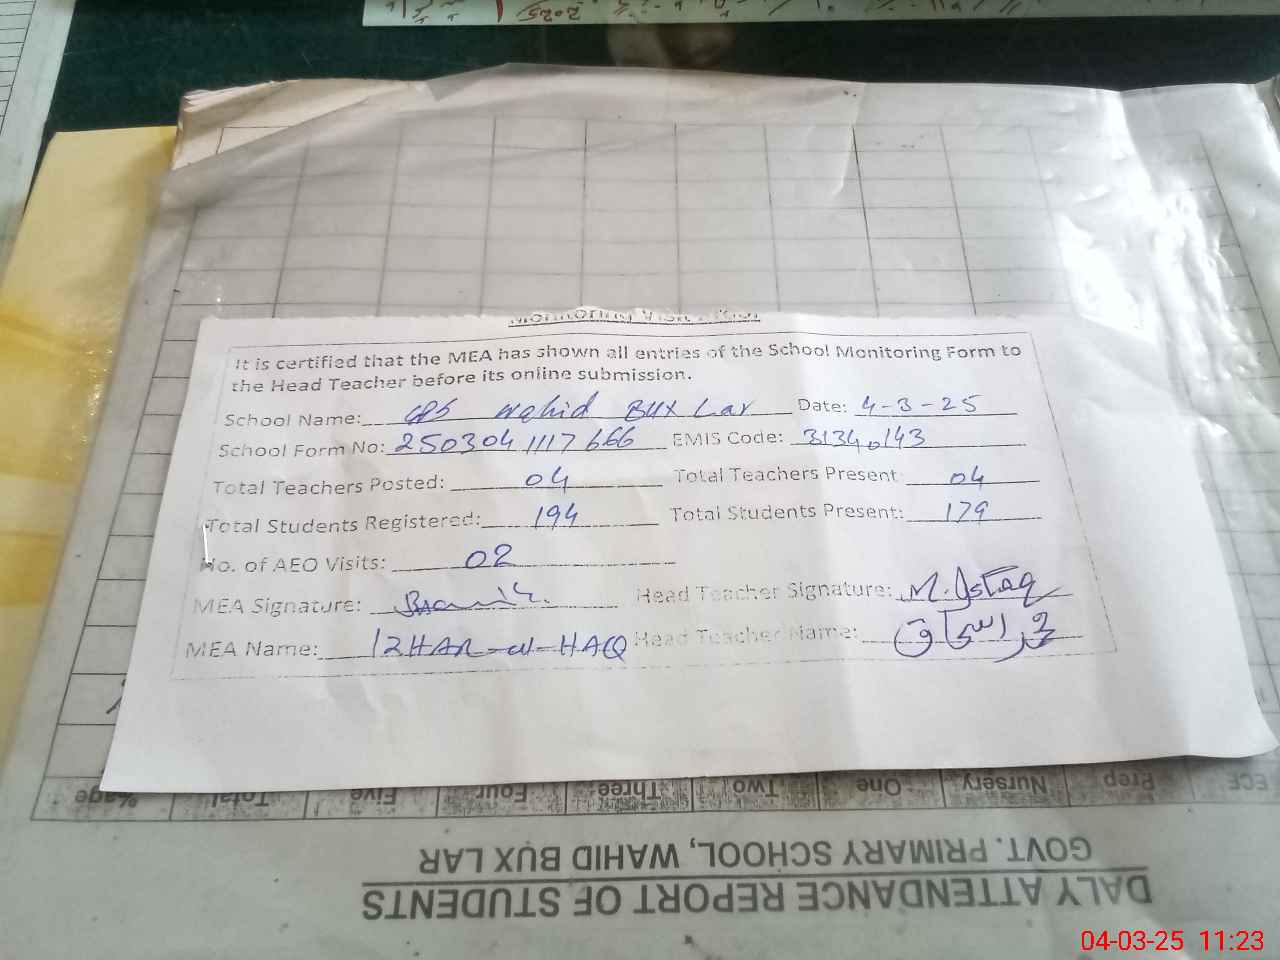 2025
Monitoring Visit
It is certified that the MEA has shown all entries of the School Monitoring Form to
the Head Teacher before its online submission.
School Name: GPS Wahid BUX Lar Date: 4-3-25
School Form No: 2503041117666 EMIS Code: 31340143
Total Teachers Posted: 04 Total Teachers Present: 04
Total Students Registered: 194 Total Students Present: 179
No. of AEO Visits: 02
MEA Signature: Head Teacher Signature: M. Istaq
MEA Name: IZHAR-ul-HAQ Head Teacher Name: محمد اسحاق
%age Total Five Four Three Two One Nursery Prep ECE
GOVT. PRIMARY SCHOOL, WAHID BUX LAR
DALY ATTENDANCE REPORT OF STUDENTS
04-03-25 11:23